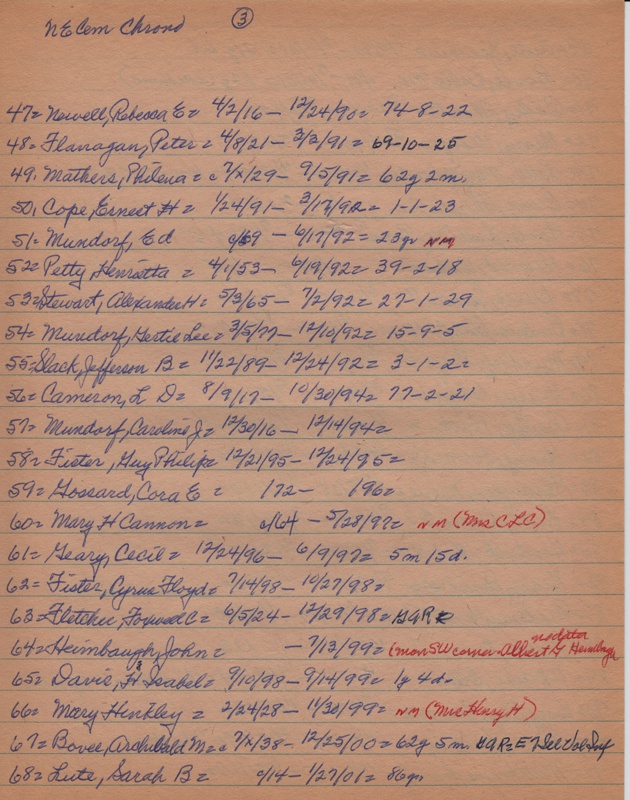 NE Cem Chrond ③
47= Newell, Rebecca E= 4/2/16 — 12/24/90= 74-8-22
48= Flanagan, Peter= 4/8/21 — 3/3/91= 69-10-25
49. Mathers, Philena= c 7/x/29 — 9/5/91= 62y 2m.
50. Cope, Ernest H= 1/24/91 — 3/17/92= 1-1-23
51= Mundorf, Ed c/69 — 6/17/92= 23yr NM
52= Petty, Henrietta = 4/1/53 — 6/19/92= 39-2-18
53= Stewart, Alexander H= 5/3/65 — 7/2/92= 27-1-29
54= Mundorf, Gertie Lee= 3/5/77 — 12/10/92= 15-9-5
55= Slack, Jefferson B= 11/22/89 — 12/24/92= 3-1-2=
56= Cameron, L D= 8/9/17 — 10/30/94= 77-2-21
57= Mundorf, Caroline J= 12/30/16 — 12/14/94=
58= Fister, Guy Philip= 12/21/95 — 12/24/95=
59= Gossard, Cora E = 172- 196=
60= Mary H Cannon= c/64 — 5/28/97= NM (Mrs CLC)
61= Geary, Cecil= 12/24/96 — 6/9/97= 5m 15d.
62= Fister, Cyrus Floyd= 7/14/98 — 10/27/98=
63= Fletcher, C= 6/5/24 — 12/29/98= GAR
64= Heimbaugh, John= — 7/13/99= (mon SW corner - Albert H Heimbaugh
65= Davis, H & Isabel= 9/10/98 — 9/14/99= 1y 4d.
66= Mary Hinkley = 2/24/28 — 11/30/99= NM (Mrs Henry H)
67= Bovee, Archibald M= c 7/x/38 — 12/25/00= 62y 5m. GAR= E 7 Del Vol Inf
68= Lute, Sarah B= c/14 — 1/27/01= 86yr